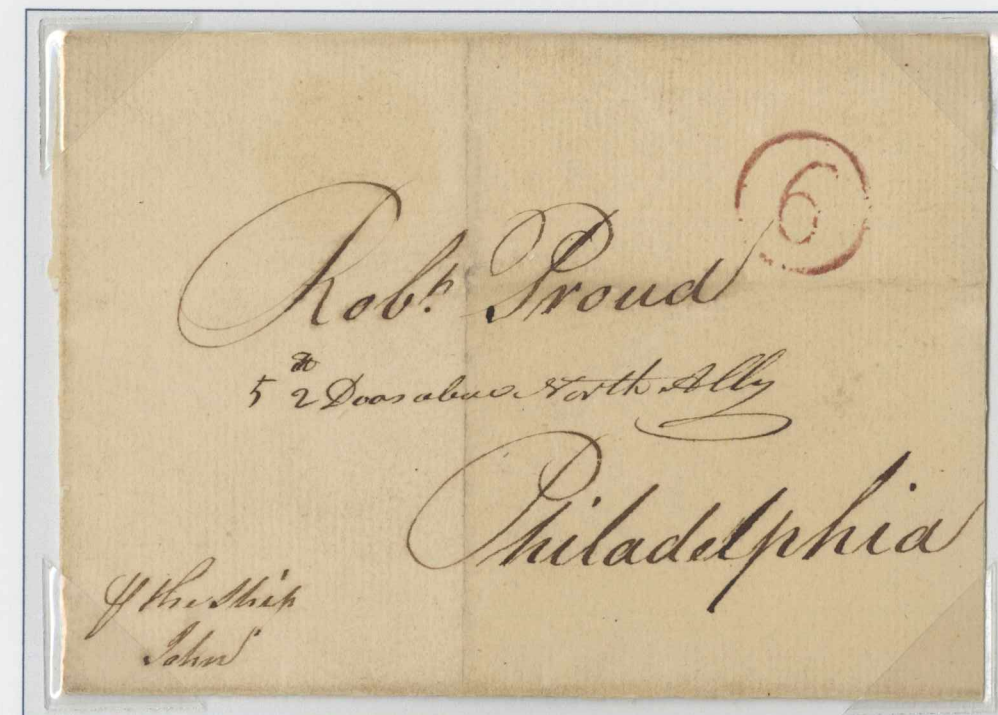 6
Robt. Proud
5th 2 Doors above North Ally
Philadelphia
⅌ the Ship
John